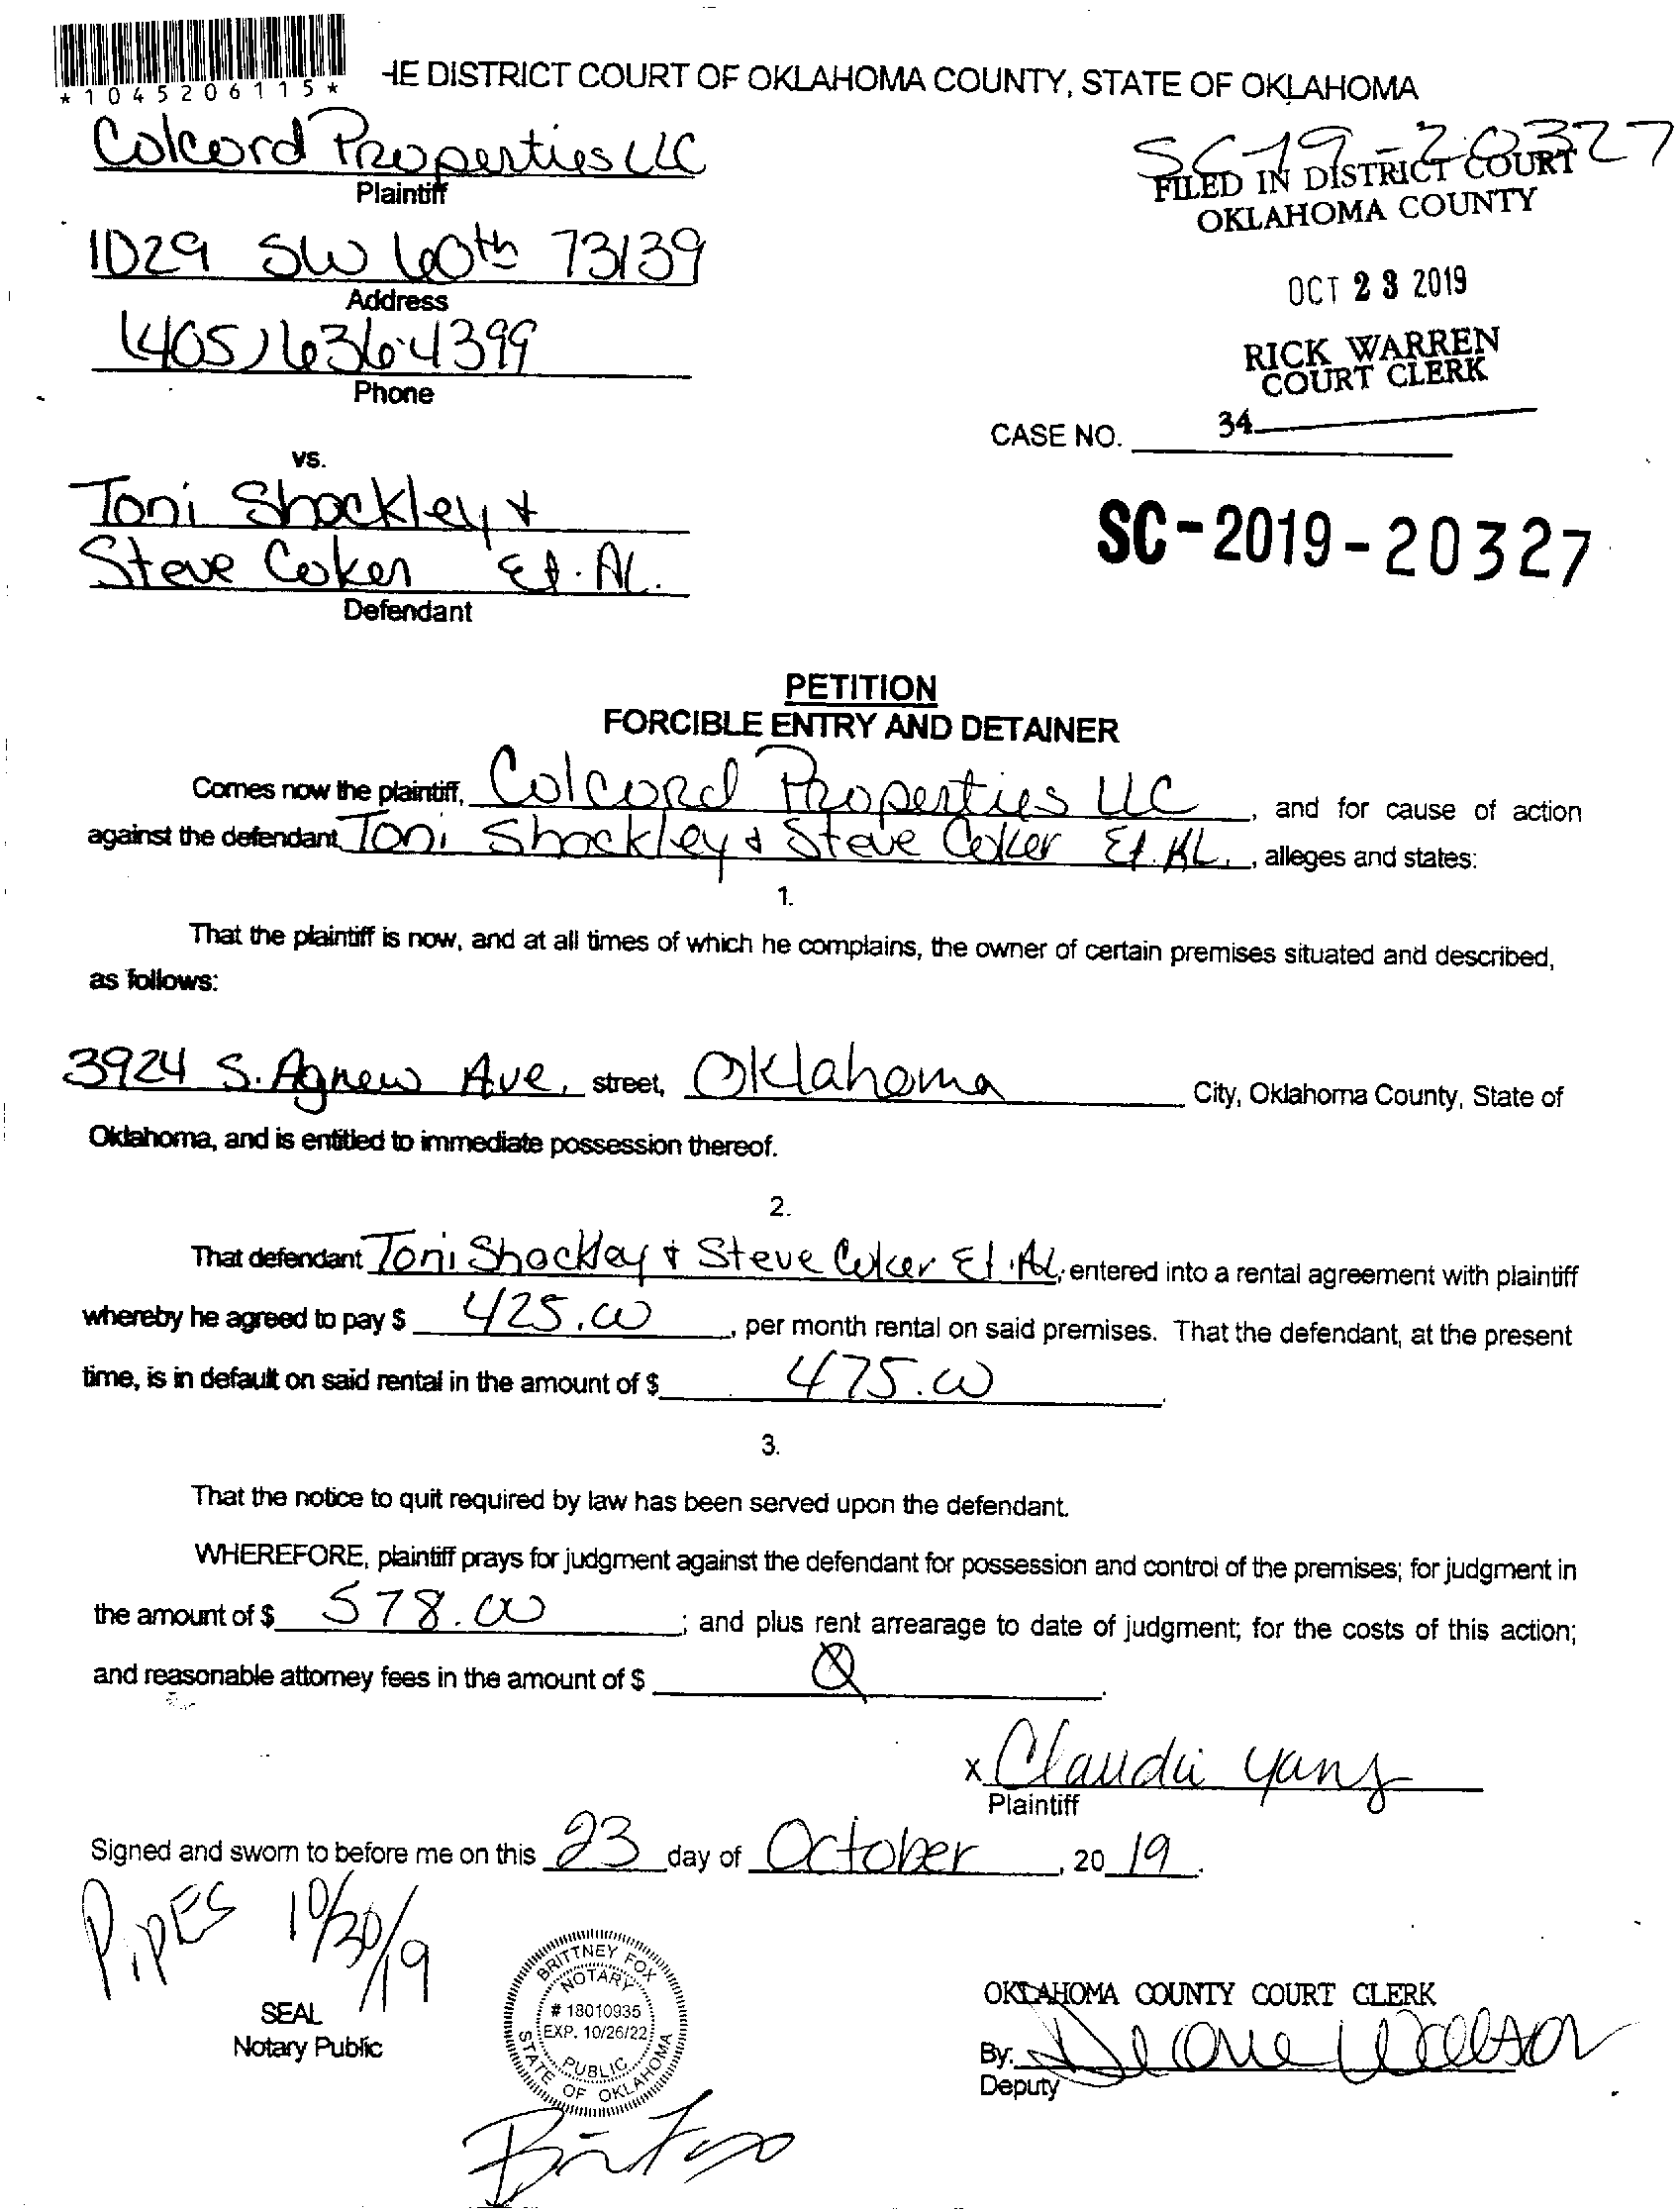 *1045206115*
HE DISTRICT COURT OF OKLAHOMA COUNTY, STATE OF OKLAHOMA
Colcord Properties LLC
Plaintiff
SC-19-20327
FILED IN DISTRICT COURT
OKLAHOMA COUNTY
1029 SW 60th 73139
Address
OCT 23 2019
(405) 636-4399
Phone
RICK WARREN
COURT CLERK
CASE NO. 34
vs.
Toni Shockley &
Steve Coker Et. Al.
Defendant
SC-2019-20327
PETITION
FORCIBLE ENTRY AND DETAINER
Comes now the plaintiff, Colcord Properties LLC, and for cause of action
against the defendant Toni Shockley & Steve Coker Et. Al., alleges and states:
1.
That the plaintiff is now, and at all times of which he complains, the owner of certain premises situated and described,
as follows:
3924 S. Agnew Ave, street, Oklahoma City, Oklahoma County, State of
Oklahoma, and is entitled to immediate possession thereof.
2.
That defendant Toni Shockley & Steve Coker Et. Al, entered into a rental agreement with plaintiff
whereby he agreed to pay $ 425.00, per month rental on said premises. That the defendant, at the present
time, is in default on said rental in the amount of $ 475.00.
3.
That the notice to quit required by law has been served upon the defendant.
WHEREFORE, plaintiff prays for judgment against the defendant for possession and control of the premises; for judgment in
the amount of $ 578.00; and plus rent arrearage to date of judgment; for the costs of this action;
and reasonable attorney fees in the amount of $
x Claudia Yang
Plaintiff
Signed and sworn to before me on this 23 day of October, 2019.
PIPES 10/30/19
SEAL
Notary Public
BRITTNEY FOX
NOTARY
# 18010935
EXP. 10/26/22
PUBLIC
STATE OF OKLAHOMA
OKLAHOMA COUNTY COURT CLERK
By:
Deputy